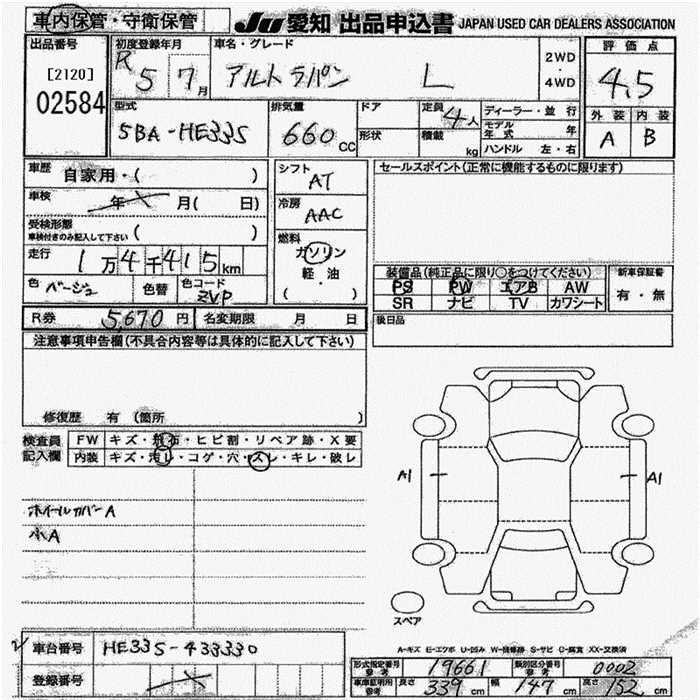 車内保管・守衛保管 JU 愛知 出品申込書 JAPAN USED CAR DEALERS ASSOCIATION
出品番号 初度登録年月 車名・グレード 2WD・4WD 評価点
[2120] R 5 7月 アルトラパン L 4.5
02584
型式 排気量 ドア 定員 4人 ディーラー・並行 外装 内装
5BA-HE33S 660CC 形状 積載 kg モデル年式 年 A B
ハンドル 左・右
車歴 自家用・( ) シフト AT セールスポイント(正常に機能するものに限ります)
車検 年 月( 日) 冷房 AAC
受検形態
車検付きのみ記入して下さい ( )
燃料 ガソリン
軽・油
( )
走行 1万4千415km
色 ベージュ 色替 色コード ZVP
装備品(純正品に限り○をつけてください) 新車保証書
PS PW エアB AW 有・無
SR ナビ TV カワシート
R券 5,670円 名変期限 月 日
後日品
注意事項申告欄(不具合内容等は具体的に記入して下さい)
修復歴 有 (箇所 )
検査員記入欄 FW キズ・飛石・ヒビ割・リペア跡・X要
内装 キズ・汚レ・コゲ・穴・スレ・キレ・破レ
A1 A1
ホイールカバーA
小A
スペア
A-キズ E-エクボ U-凹み W-補修跡 S-サビ C-腐食 XX-交換済
車台番号 HE33S-433330
登録番号
型式指定番号 参考 19661 類別区分番号 参考 0002
車庫証明用 参考 長さ 339cm 幅 147cm 高さ 152cm